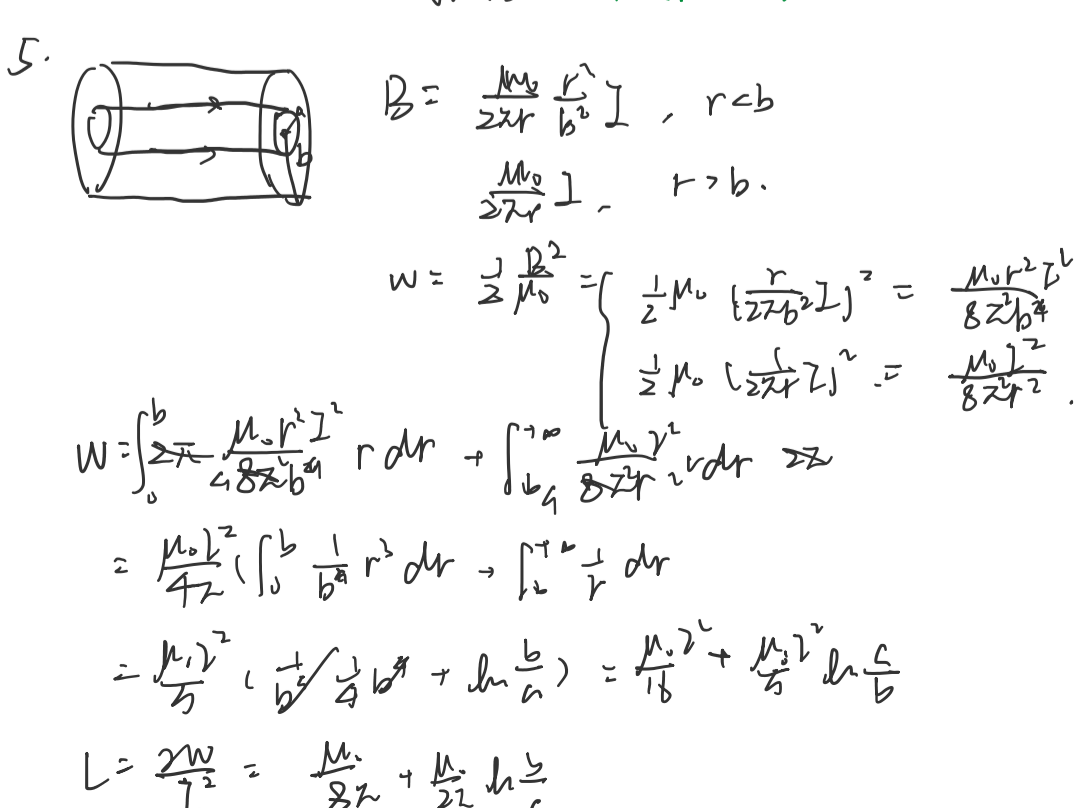 5.
a
b
B = \frac{\mu_0}{2\pi r} \frac{r^2}{b^2} I , r < b
\frac{\mu_0}{2\pi r} I , r > b.
w = \frac{1}{2} \frac{B^2}{\mu_0} = { \frac{1}{2} \mu_0 (\frac{r}{2\pi b^2} I)^2 = \frac{\mu_0 r^2 I^2}{8\pi^2 b^4}
\frac{1}{2} \mu_0 (\frac{1}{2\pi r} I)^2 = \frac{\mu_0 I^2}{8\pi^2 r^2} .
W = \int_0^b \frac{\mu_0 r^2 I^2}{4\pi b^4} r dr + \int_b^{+\infty} \frac{\mu_0 I^2}{4\pi r^2} r dr
= \frac{\mu_0 I^2}{4\pi} ( \int_0^b \frac{1}{b^4} r^3 dr + \int_b^{+\infty} \frac{1}{r} dr
= ( \frac{1}{b^4} \frac{1}{4} b^4 + \ln \frac{b}{a} ) = +
L = \frac{2W}{I^2} = \frac{\mu_0}{8\pi} + \frac{\mu_0}{2\pi} \ln